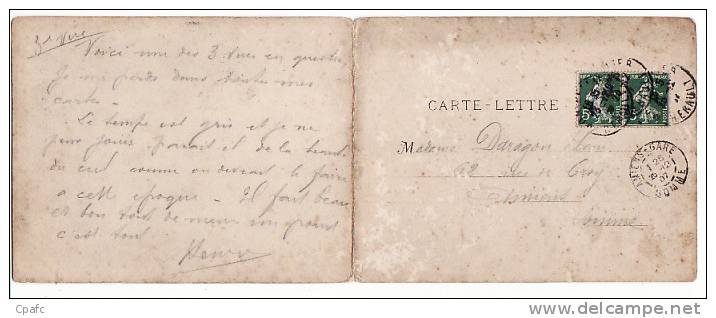 3e Vue
Voici une des 3 vues en question
Je me perds dans toutes mes
cartes -
Le temps est gris et je ne
peux jouir parait il de la beauté
du ciel comme on devrait le faire
a cette époque - Il fait beau
et bon tout de meme un grand
c'est tout -
Henri
CARTE-LETTRE
Madame Daragon
62 rue de
Amiens
Somme
AMIENS-GARE
SOMME
HERAULT
Cpafc
delcampe.net